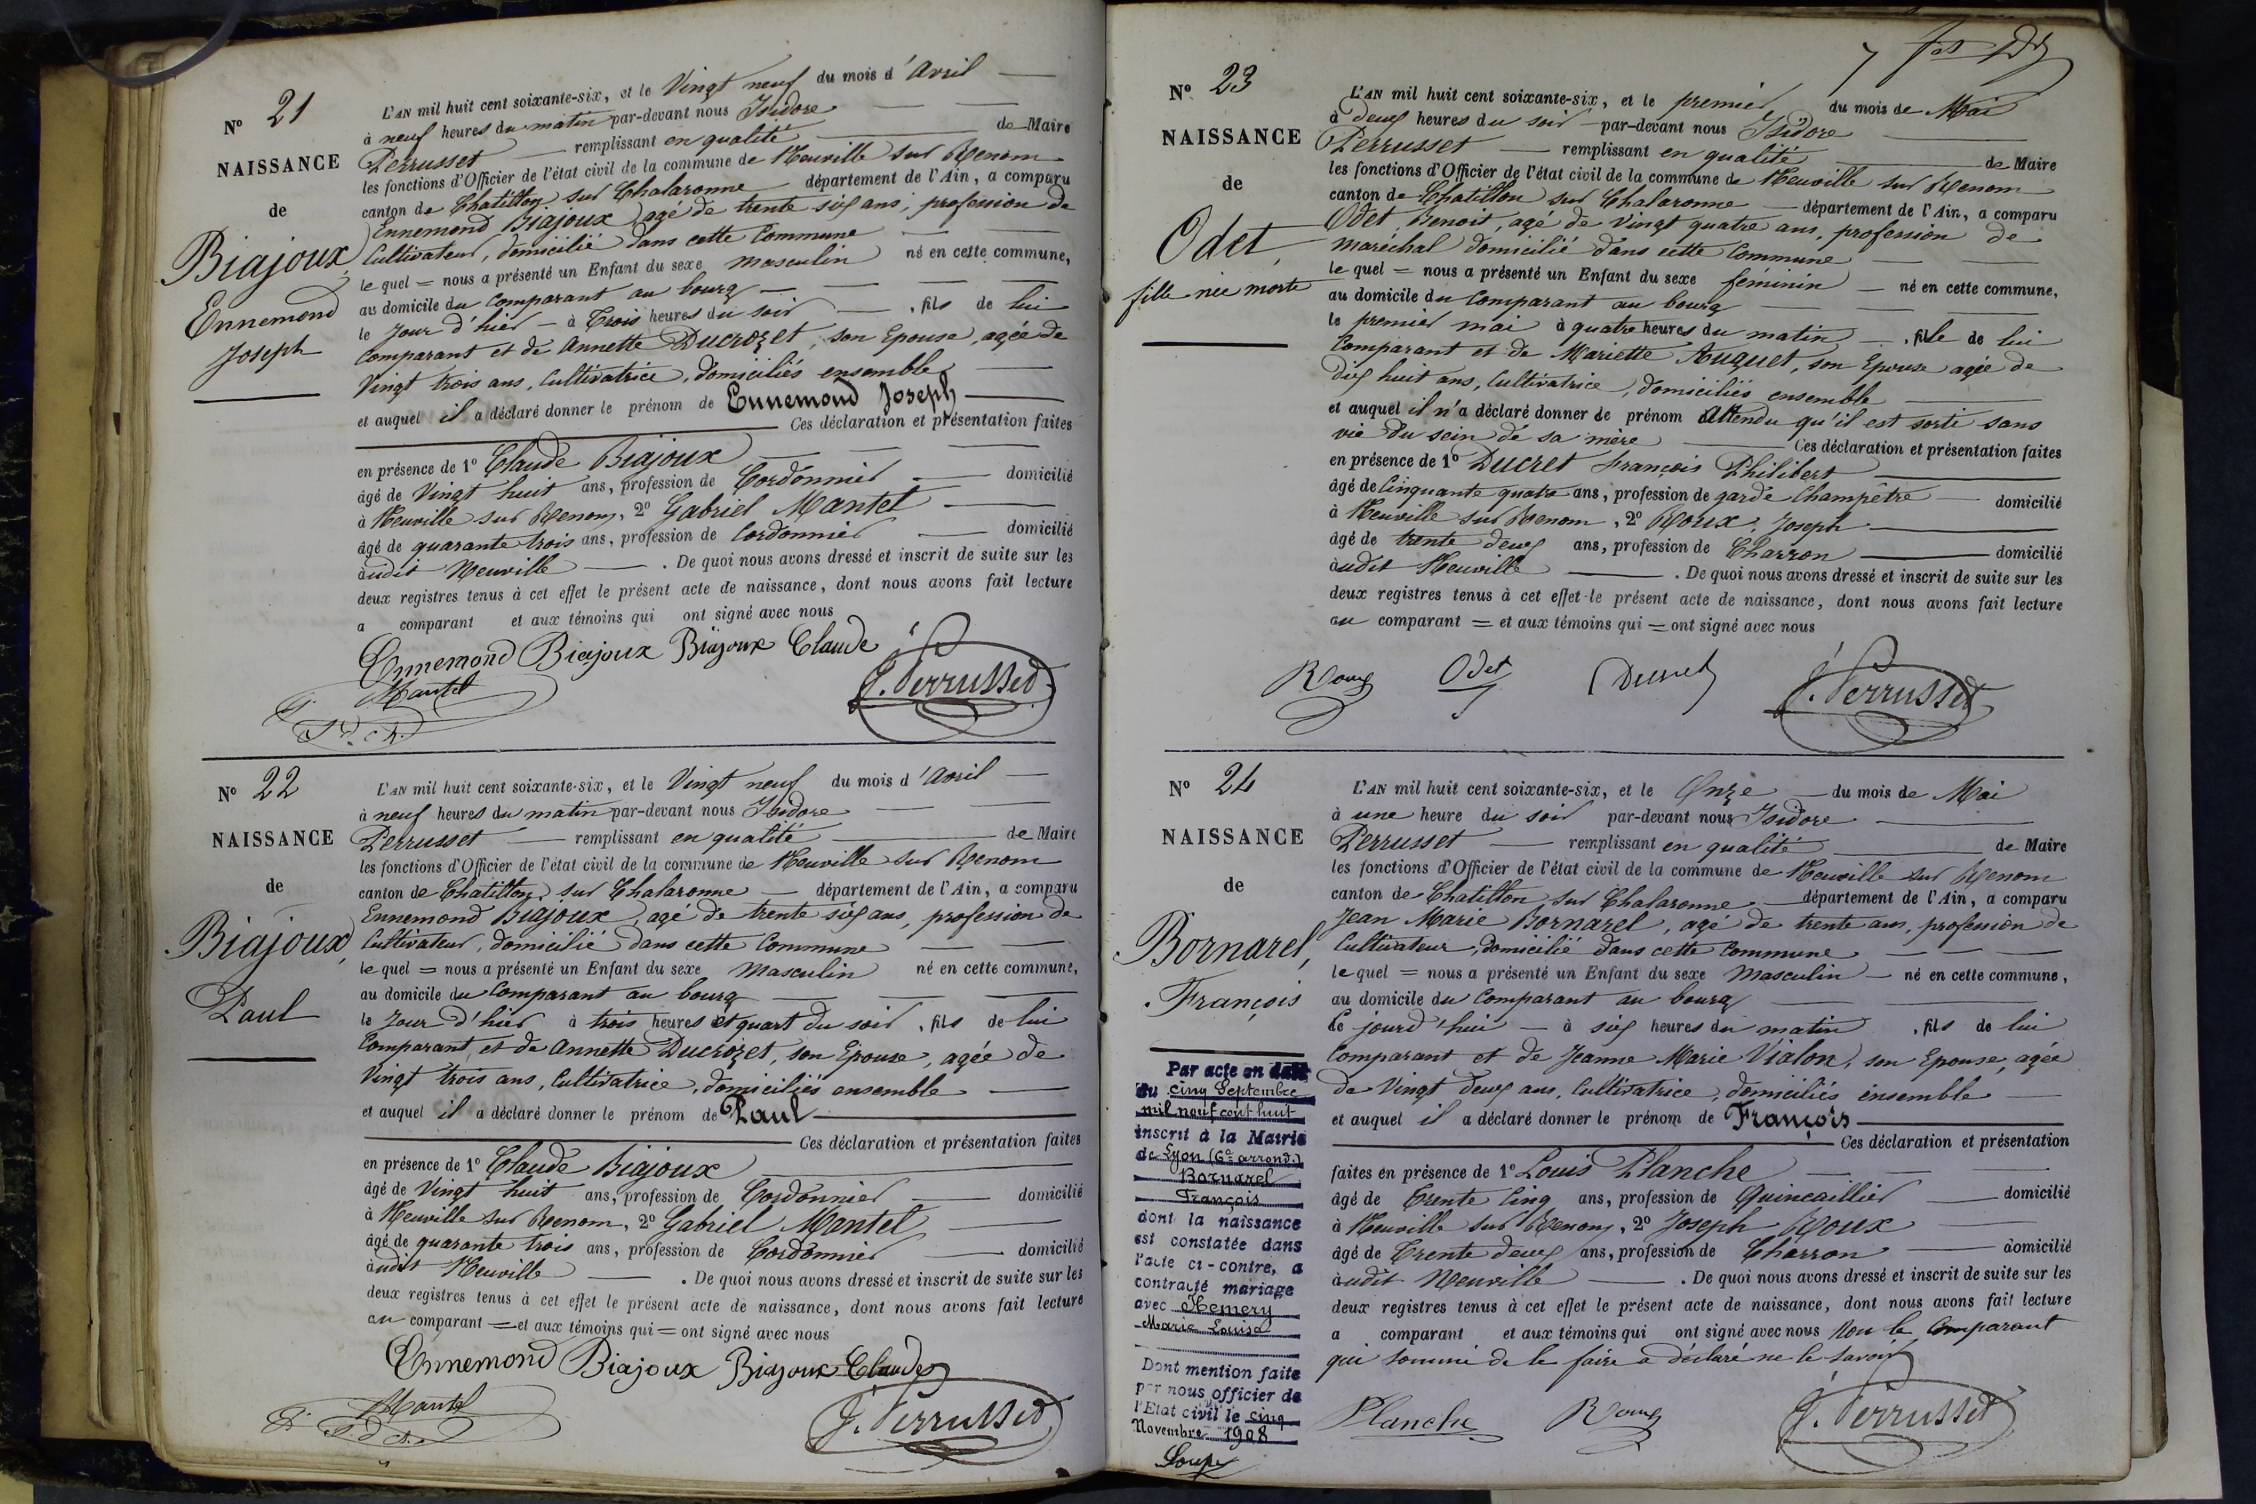 N° 21
NAISSANCE
de
Biajoux,
Ennemond
Joseph
L'AN mil huit cent soixante-six, et le Vingt neuf du mois d'Avril
à neuf heures du matin par-devant nous Isidore
Perrusset remplissant en qualité de Maire
les fonctions d'Officier de l'état civil de la commune de Neuville sur Renom
canton de Chatillon sur Chalaronne département de l'Ain, a comparu
Ennemond Biajoux, agé de trente six ans, profession de
Cultivateur, domicilié dans cette Commune
le quel = nous a présenté un Enfant du sexe masculin né en cette commune,
au domicile du Comparant au bourg
le Jour d'hier à Trois heures du soir, fils de lui
Comparant et de Annette Ducrozet, son Epouse, agée de
Vingt trois ans, Cultivatrice, domiciliés ensemble
et auquel il a déclaré donner le prénom de Ennemond Joseph
Ces déclaration et présentation faites
en présence de 1° Claude Biajoux
âgé de Vingt huit ans, profession de Cordonnier domicilié
à Neuville sur Renom, 2° Gabriel Mantel
âgé de quarante trois ans, profession de Cordonnier domicilié
audit Neuville. De quoi nous avons dressé et inscrit de suite sur les
deux registres tenus à cet effet le présent acte de naissance, dont nous avons fait lecture
a comparant et aux témoins qui ont signé avec nous
Ennemond Biajoux Biajoux Claude
Mantel
J. Perrusset
N° 22
NAISSANCE
de
Biajoux,
Paul
L'AN mil huit cent soixante-six, et le Vingt neuf du mois d'Avril
à neuf heures du matin par-devant nous Isidore
Perrusset remplissant en qualité de Maire
les fonctions d'Officier de l'état civil de la commune de Neuville sur Renom
canton de Chatillon sur Chalaronne département de l'Ain, a comparu
Ennemond Biajoux, agé de trente six ans, profession de
Cultivateur, domicilié dans cette Commune
le quel = nous a présenté un Enfant du sexe Masculin né en cette commune,
au domicile du Comparant au bourg
le Jour d'hier à trois heures et quart du soir, fils de lui
Comparant et de Annette Ducrozet, son Epouse, agée de
Vingt trois ans, Cultivatrice, domiciliés ensemble
et auquel il a déclaré donner le prénom de Paul
Ces déclaration et présentation faites
en présence de 1° Claude Biajoux
âgé de Vingt huit ans, profession de Cordonnier domicilié
à Neuville sur Renom, 2° Gabriel Mantel
âgé de quarante trois ans, profession de Cordonnier domicilié
audit Neuville. De quoi nous avons dressé et inscrit de suite sur les
deux registres tenus à cet effet le présent acte de naissance, dont nous avons fait lecture
au comparant = et aux témoins qui = ont signé avec nous
Ennemond Biajoux Biajoux Claude
Mantel
J. Perrusset
7
N° 23
NAISSANCE
de
Odet,
fille née morte
L'AN mil huit cent soixante-six, et le premier du mois de Mai
à Deux heures du soir par-devant nous Isidore
Perrusset remplissant en qualité de Maire
les fonctions d'Officier de l'état civil de la commune de Neuville sur Renom
canton de Chatillon sur Chalaronne département de l'Ain, a comparu
Odet Benoit, agé de Vingt quatre ans, profession de
maréchal domicilié dans cette Commune
le quel = nous a présenté un Enfant du sexe féminin né en cette commune,
au domicile du Comparant au bourg
le premier mai à quatre heures du matin, fille de lui
Comparant et de Mariette Auguet, son Epouse agée de
Dix huit ans, Cultivatrice, domiciliés ensemble
et auquel il n'a déclaré donner de prénom Attendu qu'il est sorti sans
vie du sein de sa mère Ces déclaration et présentation faites
en présence de 1° Ducret François Philibert
âgé de Cinquante quatre ans, profession de garde Champêtre domicilié
à Neuville sur Renom, 2° Roux, Joseph
âgé de trente deux ans, profession de Charron domicilié
audit Neuville. De quoi nous avons dressé et inscrit de suite sur les
deux registres tenus à cet effet le présent acte de naissance, dont nous avons fait lecture
au comparant = et aux témoins qui = ont signé avec nous
Roux Odet Ducret J. Perrusset
N° 24
NAISSANCE
de
Bornarel,
François
L'AN mil huit cent soixante-six, et le Onze du mois de Mai
à une heure du soir par-devant nous Isidore
Perrusset remplissant en qualité de Maire
les fonctions d'Officier de l'état civil de la commune de Neuville sur Renom
canton de Chatillon sur Chalaronne département de l'Ain, a comparu
Jean Marie Bornarel, agé de trente ans, profession de
Cultivateur, domicilié dans cette Commune
le quel = nous a présenté un Enfant du sexe Masculin né en cette commune,
au domicile du Comparant au bourg
le jourd'hui à six heures du matin, fils de lui
Comparant et de Jeanne Marie Vialon, son Epouse, agée
de Vingt deux ans, Cultivatrice, domiciliés ensemble
et auquel il a déclaré donner le prénom de François
Ces déclaration et présentation
faites en présence de 1° Louis Planche
âgé de Trente Cinq ans, profession de Quincaillier domicilié
à Neuville sur Renom, 2° Joseph Roux
âgé de Trente deux ans, profession de Charron domicilié
audit Neuville. De quoi nous avons dressé et inscrit de suite sur les
deux registres tenus à cet effet le présent acte de naissance, dont nous avons fait lecture
a comparant et aux témoins qui ont signé avec nous Non le Comparant
qui sommé de le faire a déclaré ne le savoir
Planche Roux J. Perrusset
Par acte en date
du cinq Septembre
mil neuf cent huit
inscrit à la Mairie
de Lyon (6e arrond.)
Bornarel
François
dont la naissance
est constatée dans
l'acte ci-contre, a
contracté mariage
avec Hemery
Marie Louise
Dont mention faite
par nous officier de
l'Etat civil le cinq
Novembre 1908